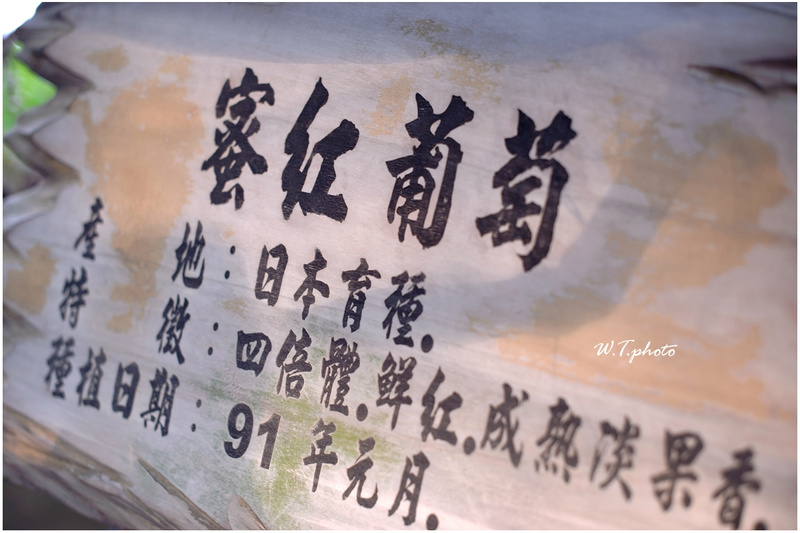 蜜紅葡萄
產地：日本育種.
特徵：四倍體.鮮紅.成熟淡果香.
種植日期：91年元月.
W.T.photo